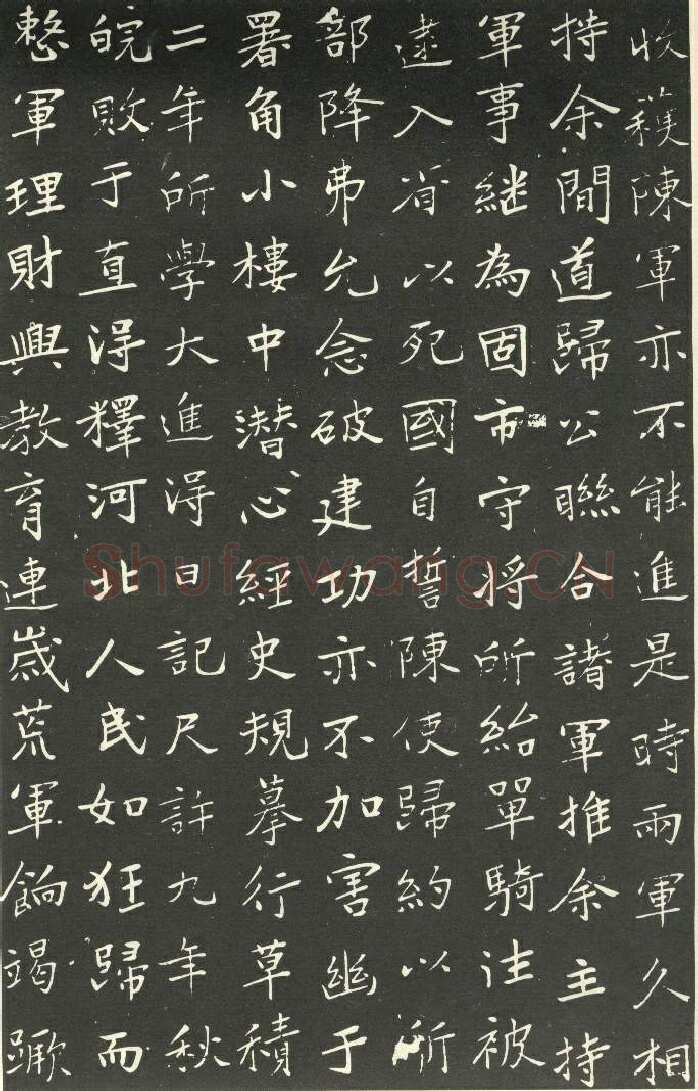 收穫陳軍亦不能進是時兩軍久相
持余間道歸公聯合諸軍推余主持
軍事継為固市守将所紿單騎往被
逮入省以死國自誓陳使歸約以所
部降弗允念破建功亦不加害幽于
署角小樓中潜心經史規摹行草積
二年所學大進得日記尺許九年秋
皖敗于直得釋河北人民如狂歸而
整軍理財興教育連歲荒軍餉竭蹶
Shufawang.CN